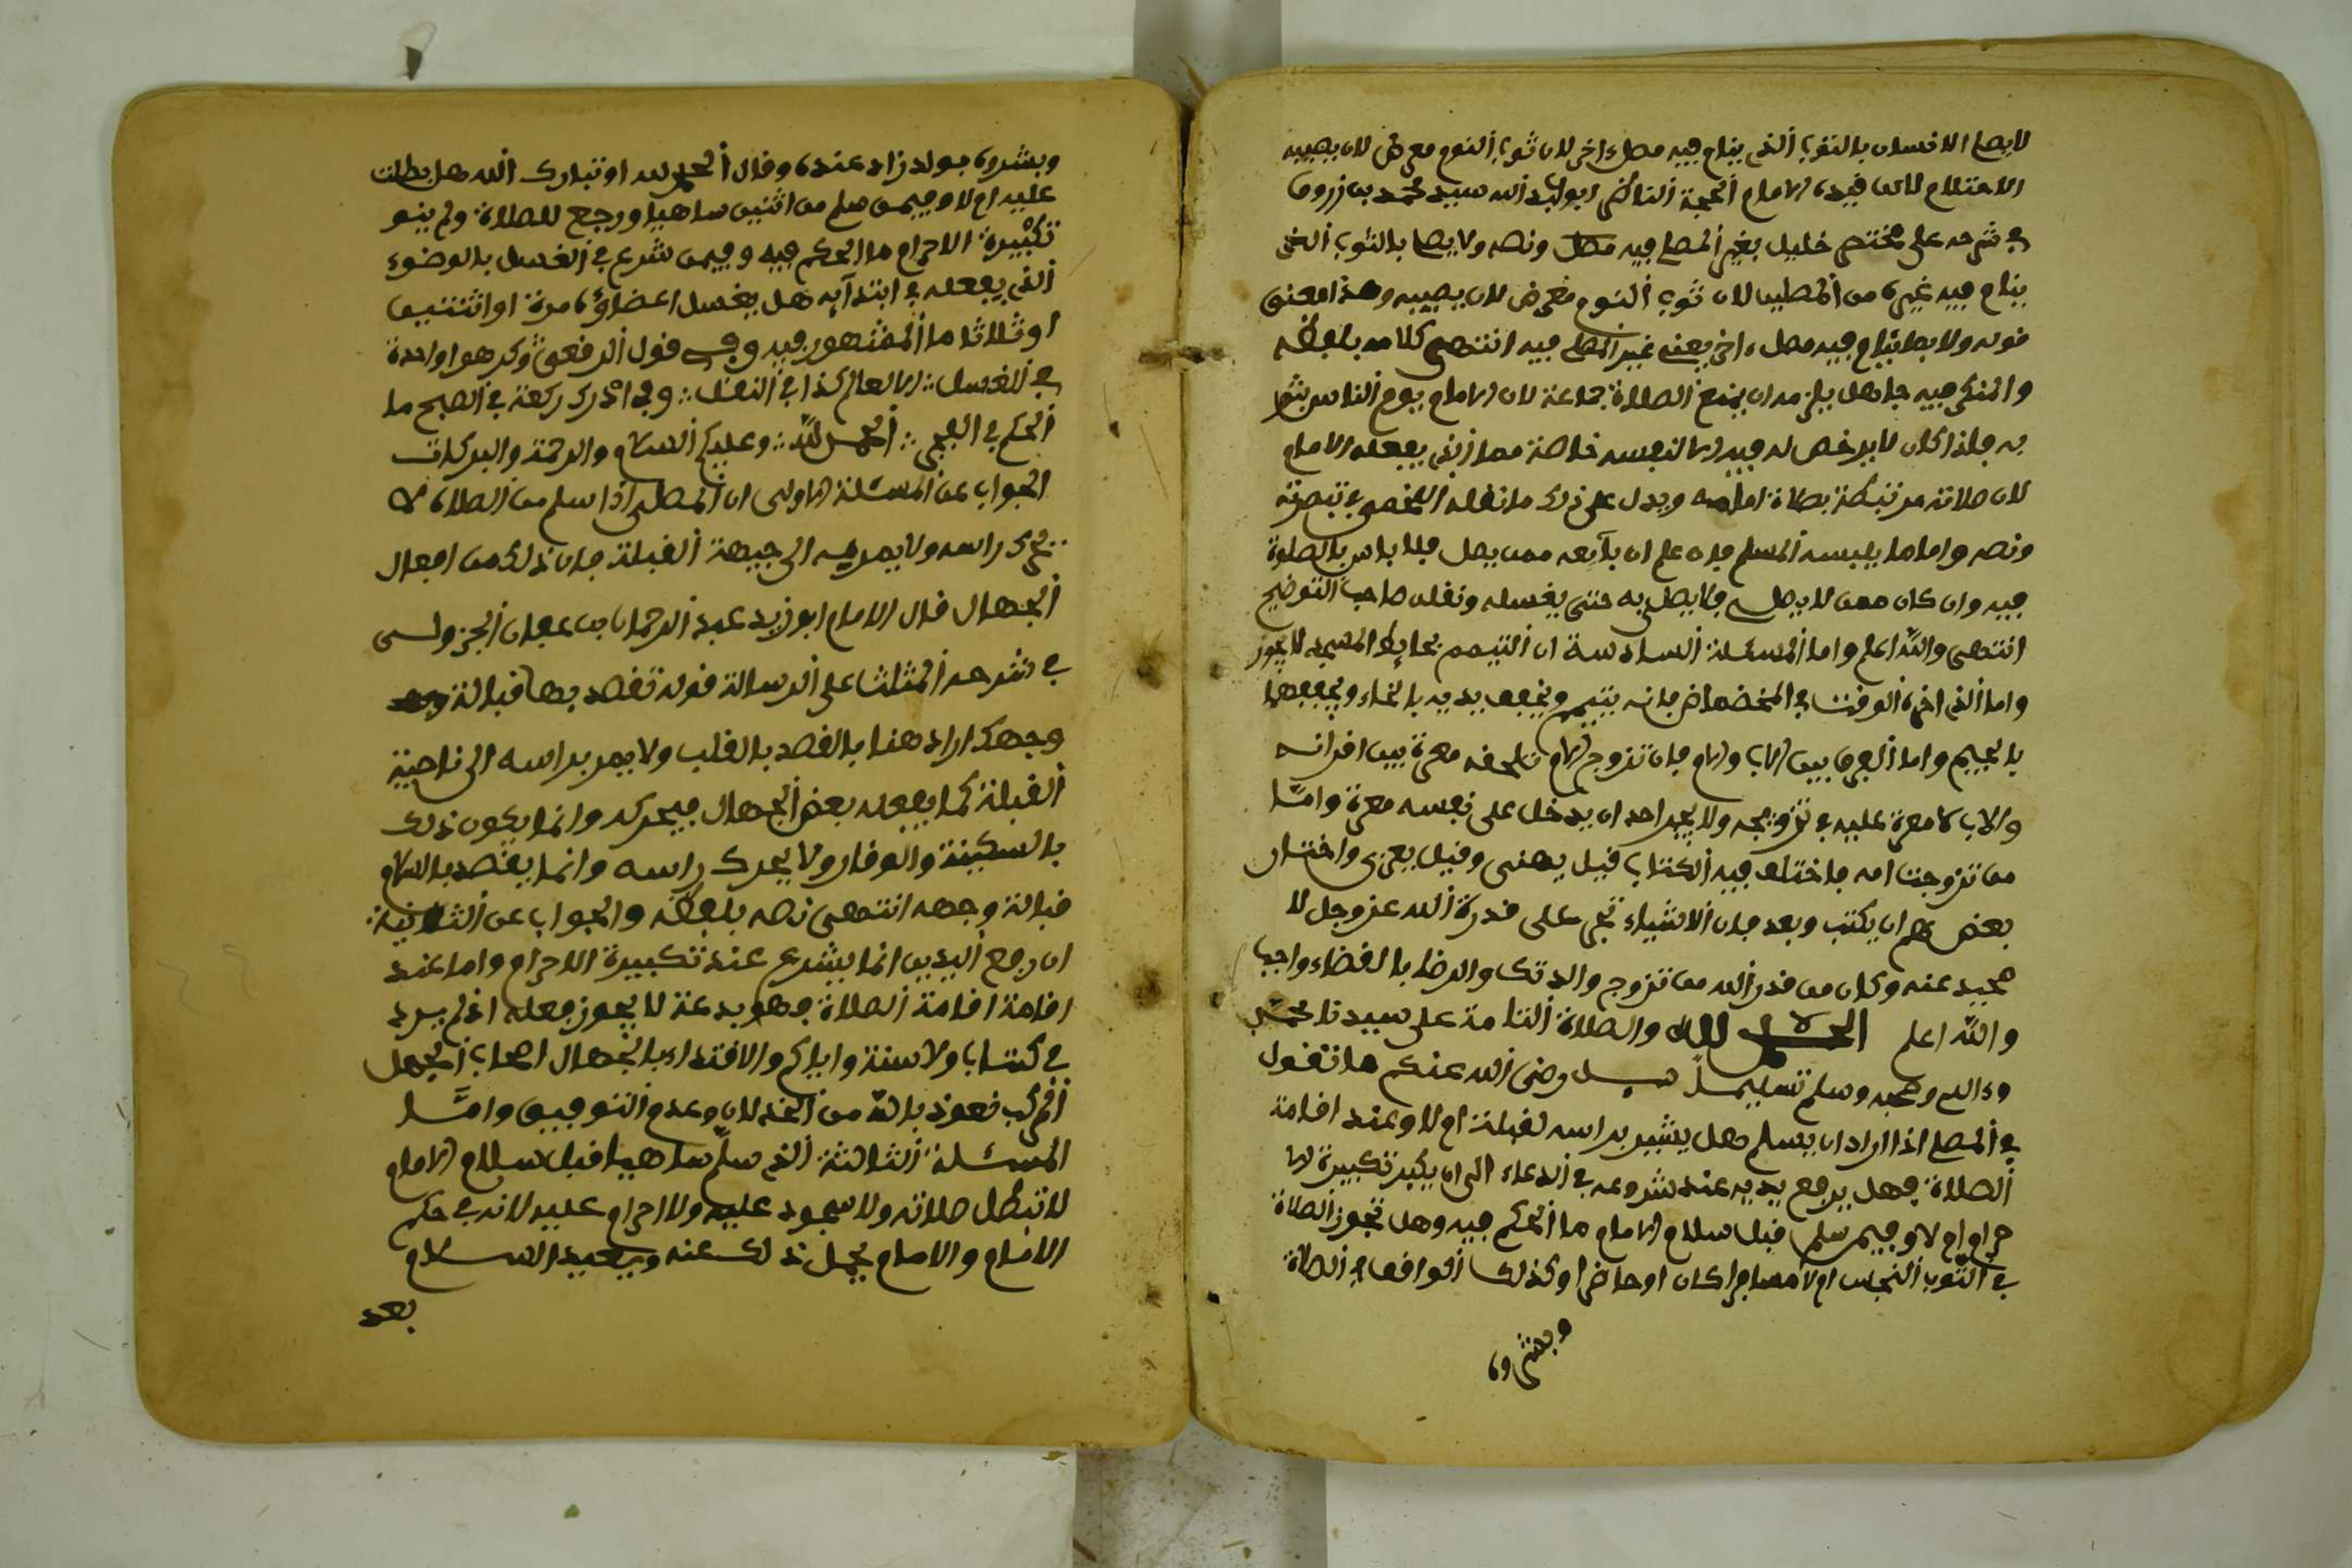 لا يصلي الانسان بالثوب الذي ينام فيه مصل اخر لان ثوب النوم معرض لان يصيبه
الاحتلام لاكن قيده الامام الحجة الناسك ابو عبد الله سيد محمد بن زروق
في شرحه على مختصر خليل بغير المصلي فيه مصل ونصه ولا يصلى بالثوب الذي
ينام فيه غيره من المصلين لان ثوب النوم معرض لان يصيبه وهذا معنى
قوله ولا بما ينام فيه مصل اخر يعني غير المصلي فيه انتهى كلامه بلفظه
والمنكر فيه جاهل يلزمه ان يمنع الصلاة جماعة لان الامام يؤم الناس بثو
به فلذا كان لا يرخص له فيه الا لنفسه خاصة فما ذنب يفعله الامام
لان صلاته مرتبطة بصلاة امامه ويدل على ذلك ما نقله اللخمي في تبصرته
ونصه واما ما يلبسه المسلم فان علم ان بآئعه ممن يصل فلا باس بالصلوة
فيه وان كان ممن لا يصلي فلا يصلى به حتى يغسله ونقله صاحب التوضيح
انتهى والله اعلم واما المسئلة السادسة ان التيمم بحايط المسجد لا يجوز
واما الذي اخره الوقت في المخضخاض فانه يتيمم ويخفف يديه بالخاء ويجففهما
بالجيم واما الفرق بين الاب والام فان تزوج الام تلحقه معرة بين اقرانه
والاب لا معرة عليه في تزويجه ولا يحب احد ان يدخل على نفسه معرة وامّا
من تزوجت امه فاختلف فيه الكتاب قيل يهنى وقيل يعزى واختار
بعضهم ان يكتب وبعد فان الاشياء تجري على قدرة الله عز وجل لا
محيد عنه وكان من قدر الله من تزوج والدتك والرضا بالقضاء واجب
والله اعلم الحمد لله والصلاة التامة على سيدنا محمد
وءاله وصحبه وسلم تسليما سيدي رضي الله عنكم ما تقول
في المصلي اذا اراد ان يسلم هل يشير براسه لقبلة ام لا وعند اقامة
الصلاة فهل يرفع يديه عند شروعه في الدعاء الى ان يكبر تكبيرة الا
حرام ام لا وفيمن سلم قبل سلام الامام ما الحكم فيه وهل تجوز الصلاة
في الثوب النجس ام لا مسافرا كان او حاضرا وكذلك الواقف في الصلاة
وبشروه
وبشروه بولد زاد عنده وقال الحمد لله او تبارك الله هل بطلت
عليه ام لا وفيمن سلم من اثنين ساهيا ورجع للصلاة ولم ينو
تكبيرة الاحرام ما الحكم فيه وفيمن شرع في الغسل بالوضوء
الذي يفعله في ابتدآيه هل يغسل اعضاؤه مرة او اثنتين
او ثلاثا ما المشهور فيه وفي قول الرقعي وكرهوا واحدة
في الغسل الا لعالم كذا في النقل وفي ادرك ركعة في الصبح ما
الحكم في الفجر الحمد لله وعليكم السلام والرحمة والبركات
الجواب عن المسئلة الاولى ان المصلي اذا سلم من الصلاة لا
يحرك راسه ولا يومئ به الى جهة القبلة فان ذلك من افعال
الجهال قال الامام ابو زيد عبد الرحمان بن عفان الجزولي
في شرحه المثلث على الرسالة قوله تقصد بها قبالة وجه
وجهك اراد هنا بالقصد بالقلب ولا يمر براسه الى ناحية
القبلة كما يفعله بعض الجهال فيحركه وانما يكون ذلك
بالسكينة والوقار ولا يحرك راسه وانما يقصد بالسلام
قبالة وجهه انتهى نصه بلفظه والجواب عن الثانية
ان رفع اليدين انما يشرع عند تكبيرة الاحرام واما عند
اقامة اقامة الصلاة فهو بدعة لا يجوز فعله اذ لم يرد
في كتاب ولا سنة واياكم والاقتداء بالجهال اصحاب الجهل
المركب نعوذ بالله من الخذلان وعدم التوفيق وامّا
المسئلة الثالثة الذي سلّم ساهيا قبل سلام الامام
لا تبطل صلاته ولا سجود عليه ولا احرام عليه لانه في حكم
الامام والامام يحمل ذلك عنه ويعيد السلام
بعد